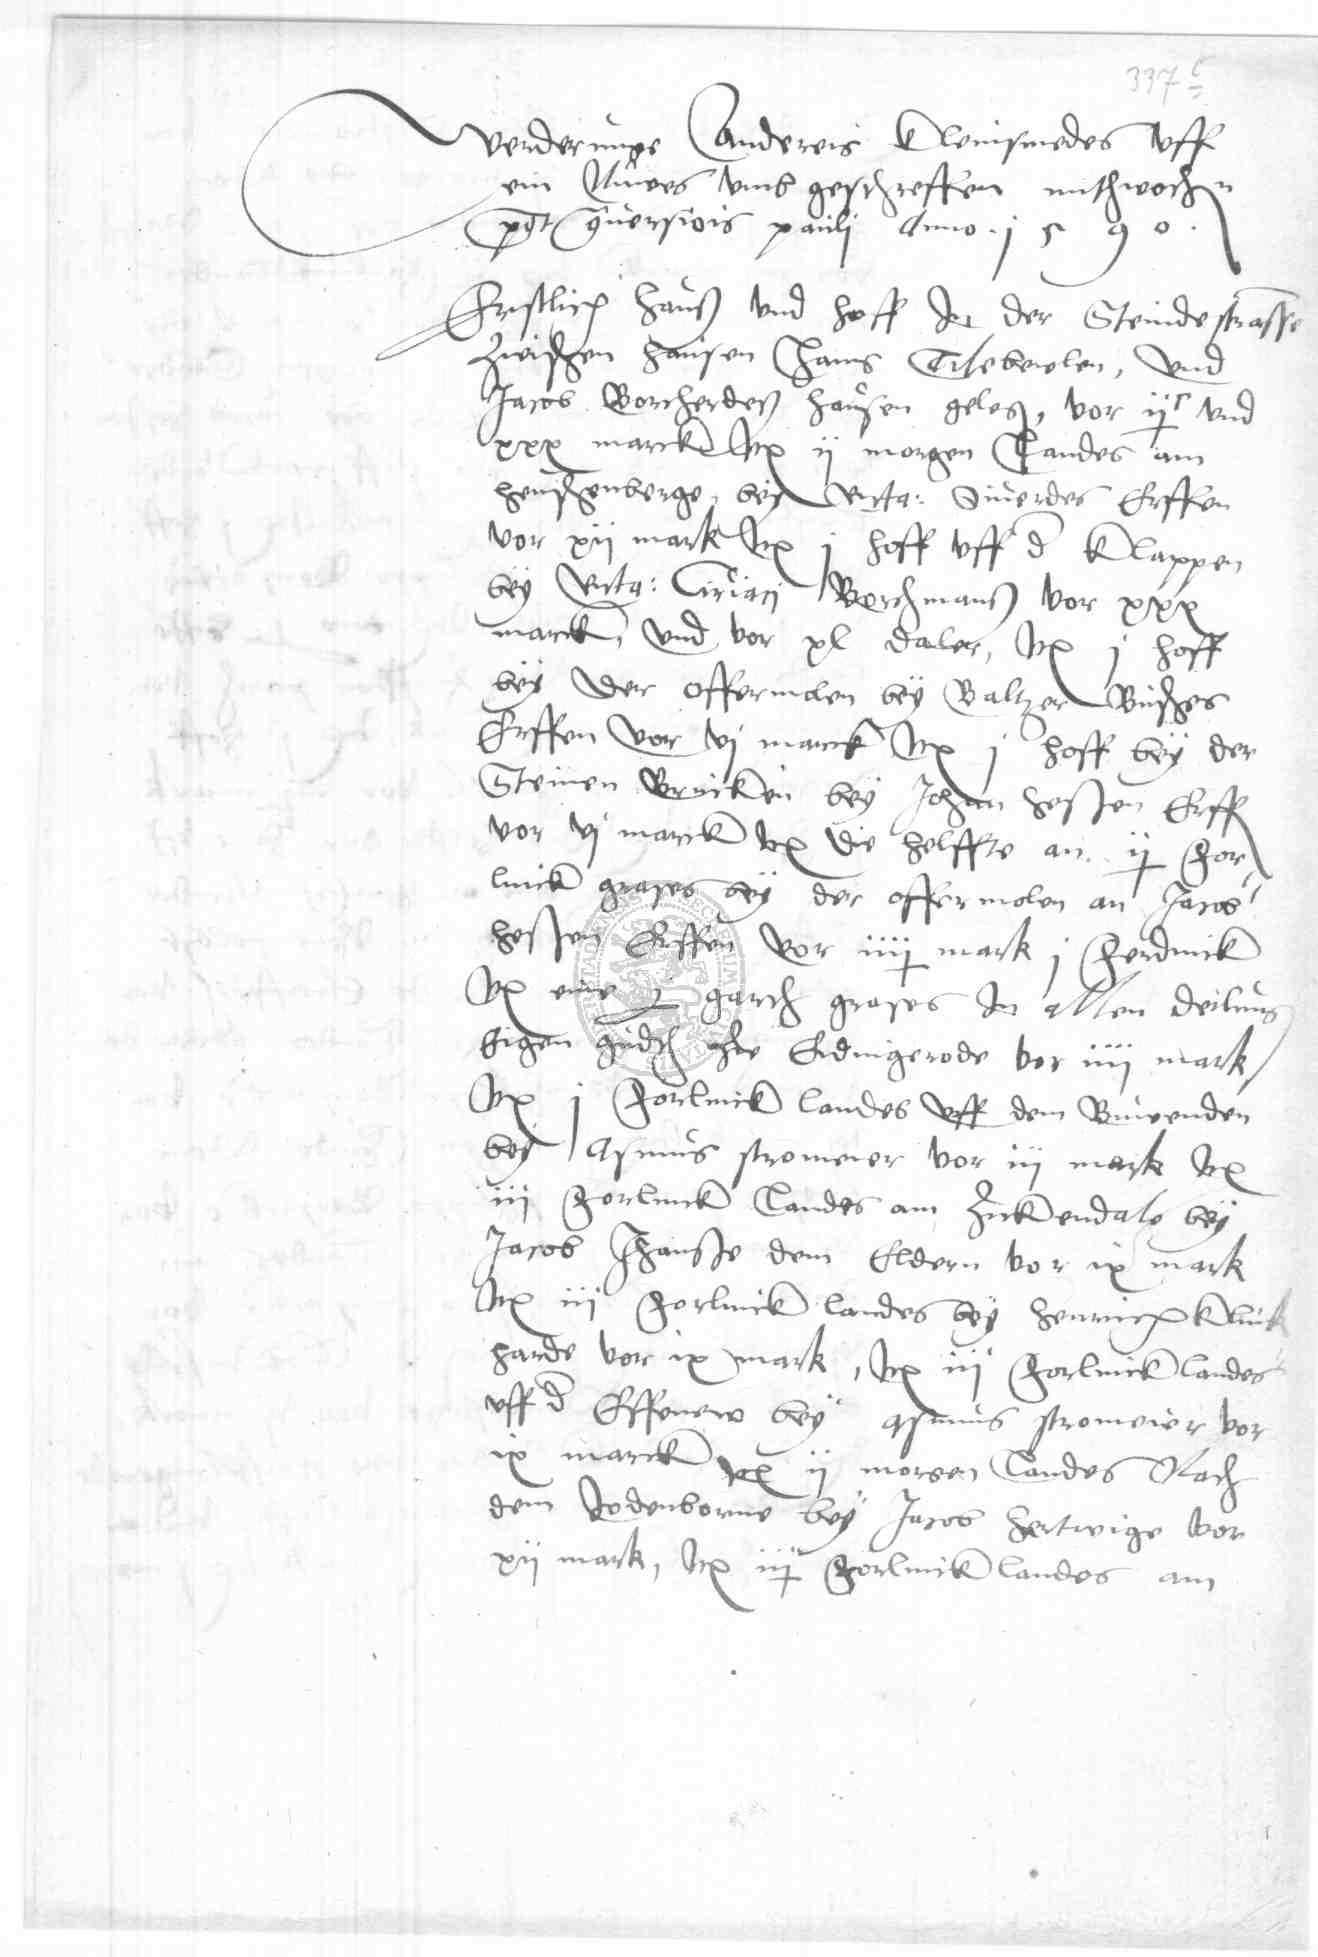 337 c
Werderunge Andereis Kleinsmedes vff
ein Nuwes vmb geschreffen mithwochn
post Conuersiois pauli Anno . j 5 9 0 .
Erstlich hauß vnd hoff In der Steinde strasse
Zwischen hausen Hans Tilebewlen, vnd
Jacob Borcherdeß hausen geleg, vor ijc vnd
xxx marck Itx ij morgen Landes am
heuschenberge, bey Vrsta: Siuerdes Erffen
vor xij mark Itx j hoff vff d Klappen
bey Vrsta: Ciriaci Borchmanß vor xxx
marck, vnd vor xl daler, Itx j hoff
bey der offermolen bey Baltzer Buschges
Erffen vor vj marck Itx j hoff bey der
Steinen Brucken bey Johan hessen Erff
vor vj marck Itx die helffte an ij for
linck grases bey der offermolen an Jacob
hessen Erffen vor iiij mark j ferdinck
Itx eine garth grases In allen deilung
Eigen Zu Ludingerode vor iiij mark
Itx j forlinck landes vff dem Buwenden
bey Asmus stromeier vor iij mark Itx
iij forlinck Landes am Zickendale bey
Jacob Hansse dem Eldern vor ix mark
Itx iij forlinck landes bey henrich Klinck
harde vor ix mark, Itx iij forlinck landes
vff d Effenew bey Asmus stromeier vor
ix marck Itx ij morgen Landes Nach
dem Rodenborne bey Jacob hertwige vor
xij mark, Itx iij forlinck landes am